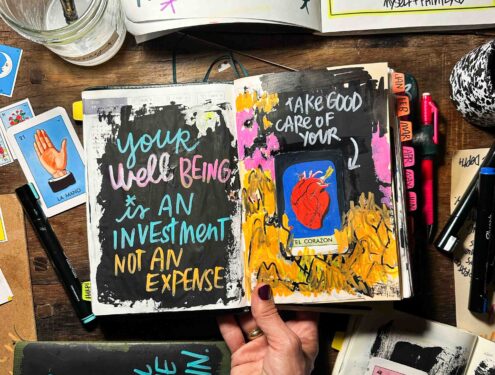 your
well BEING
is AN
INVESTMENT
NOT AN
EXPENSE
TAKE GOOD
CARE OF
YOUR
EL CORAZON
LA MANO